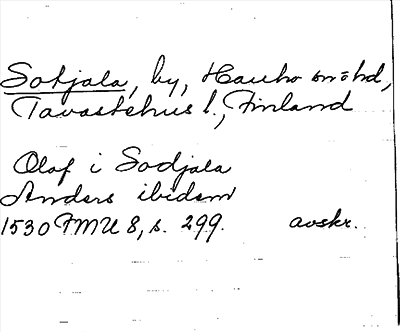 Sotjala, by, Hauho snöhd,
Tavastehus l., Finland
Olof i Sodjala
Anders ibidem
1530 FMU 8, s. 299. avskr.